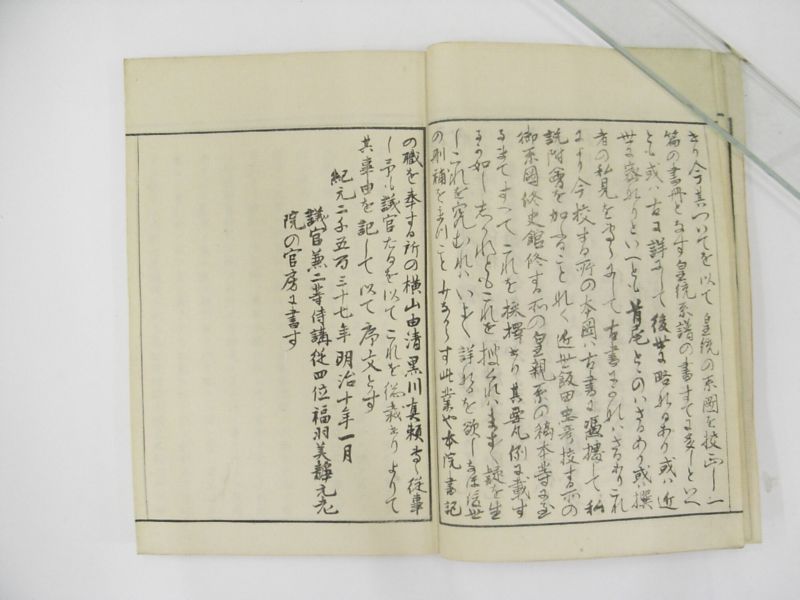 きり今其ついてを以て皇統の系図を校正し一
篇の書冊となす皇統系譜の書すてに多しといへ
とも或ハ古に詳にして後世に略れるあり或ハ近
世に委れりといへとも首尾とゝのハさるあり或ハ撰
者の私見を
により今校する所の本図ハ古書に憑拠して私
説附会を加ふることなく近世飯田忠彦校する所の
御系図修史館修する所の皇親系の稿本等に至
るまてすへてこれを採択せり其要凡例に載す
るか如ししかれともこれを捜くれハますます疑を生
しこれを究むれハいよいよ詳なるを欲し
の刪補をまつこと
の職を奉する所の横山由清黒川真頼専ら従事
し予も議官たるを以てこれを総裁せりよりて
其事由を記して以て序文とす
紀元二千五百三十七年明治十年一月
議官兼二等侍講従四位福羽美静
院の官房に書す